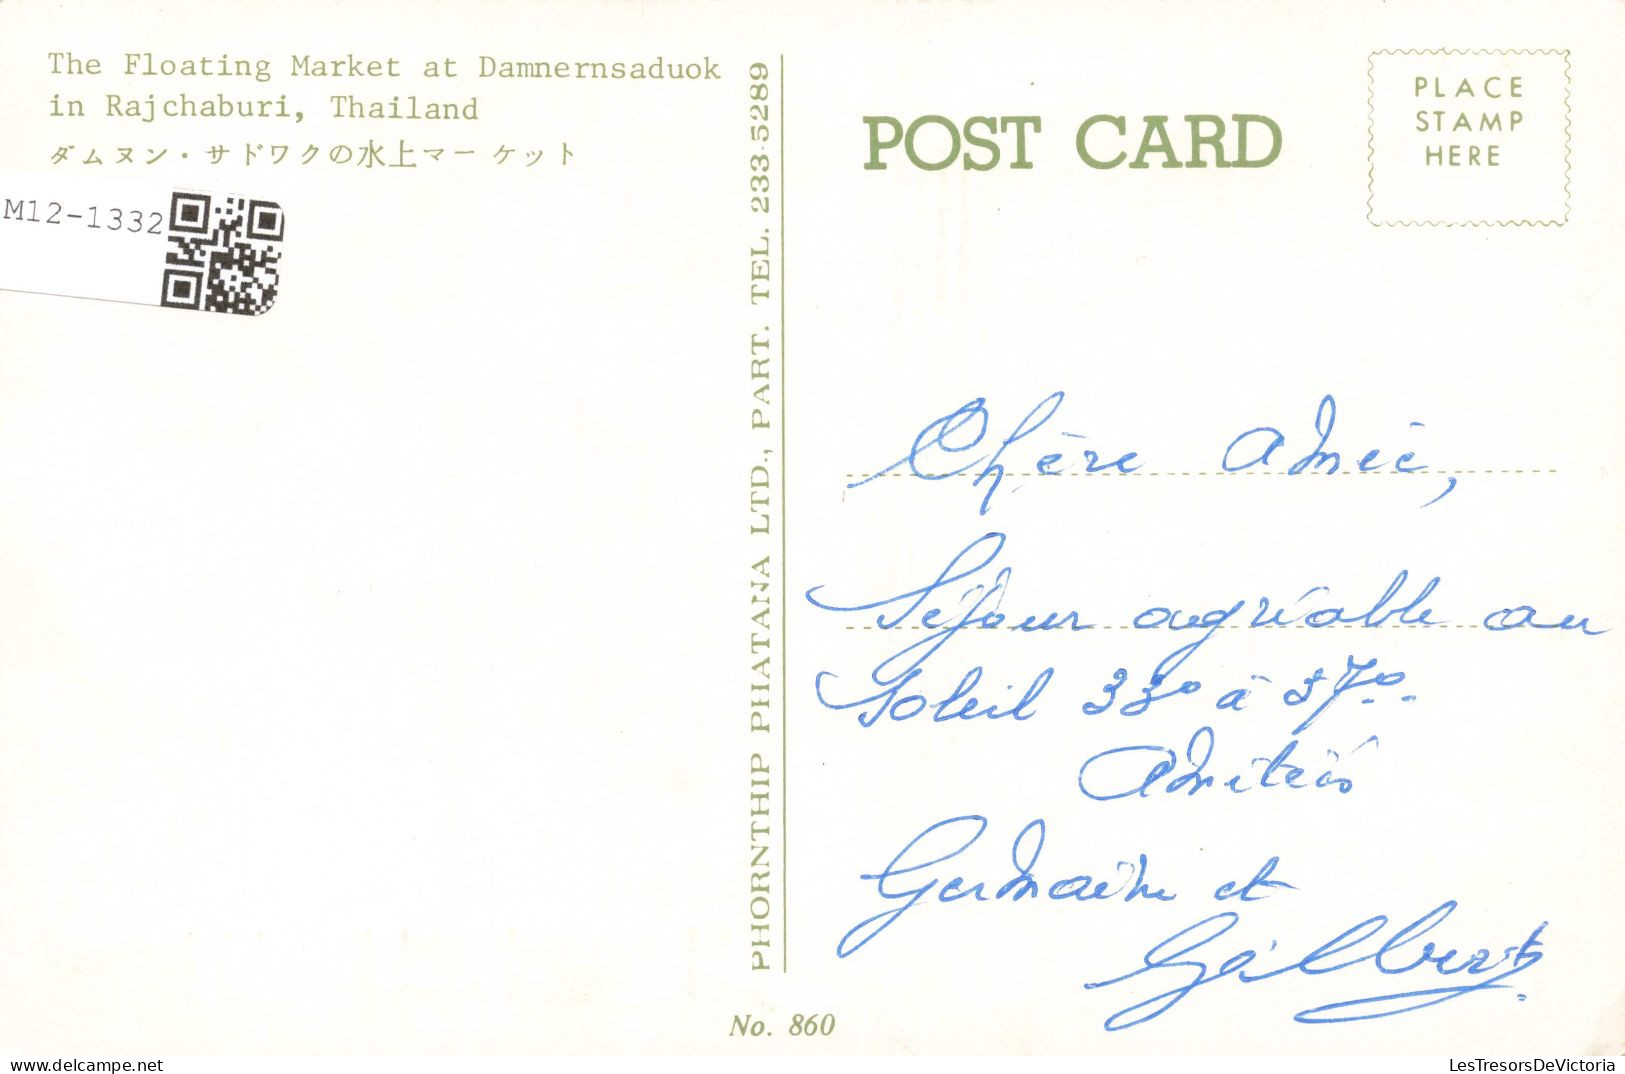 The Floating Market at Damnernsaduok
in Rajchaburi, Thailand
ダムヌン・サドワクの水上マーケット
M12-1332
PHORNTHIP PHATANA LTD., PART. TEL. 233-5289
No. 860
POST CARD
PLACE
STAMP
HERE
Chère Aimée,
Séjour agréable au
Soleil 33° à 37°.
Amitiés
Germaine et
Gilbert.
LesTresorsDeVictoria
https://www.delcampe.net